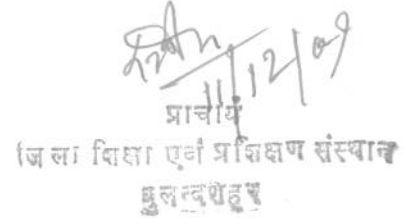 11/12/09
प्राचार्य
जिला शिक्षा एवं प्रशिक्षण संस्थान
बुलन्दशहर